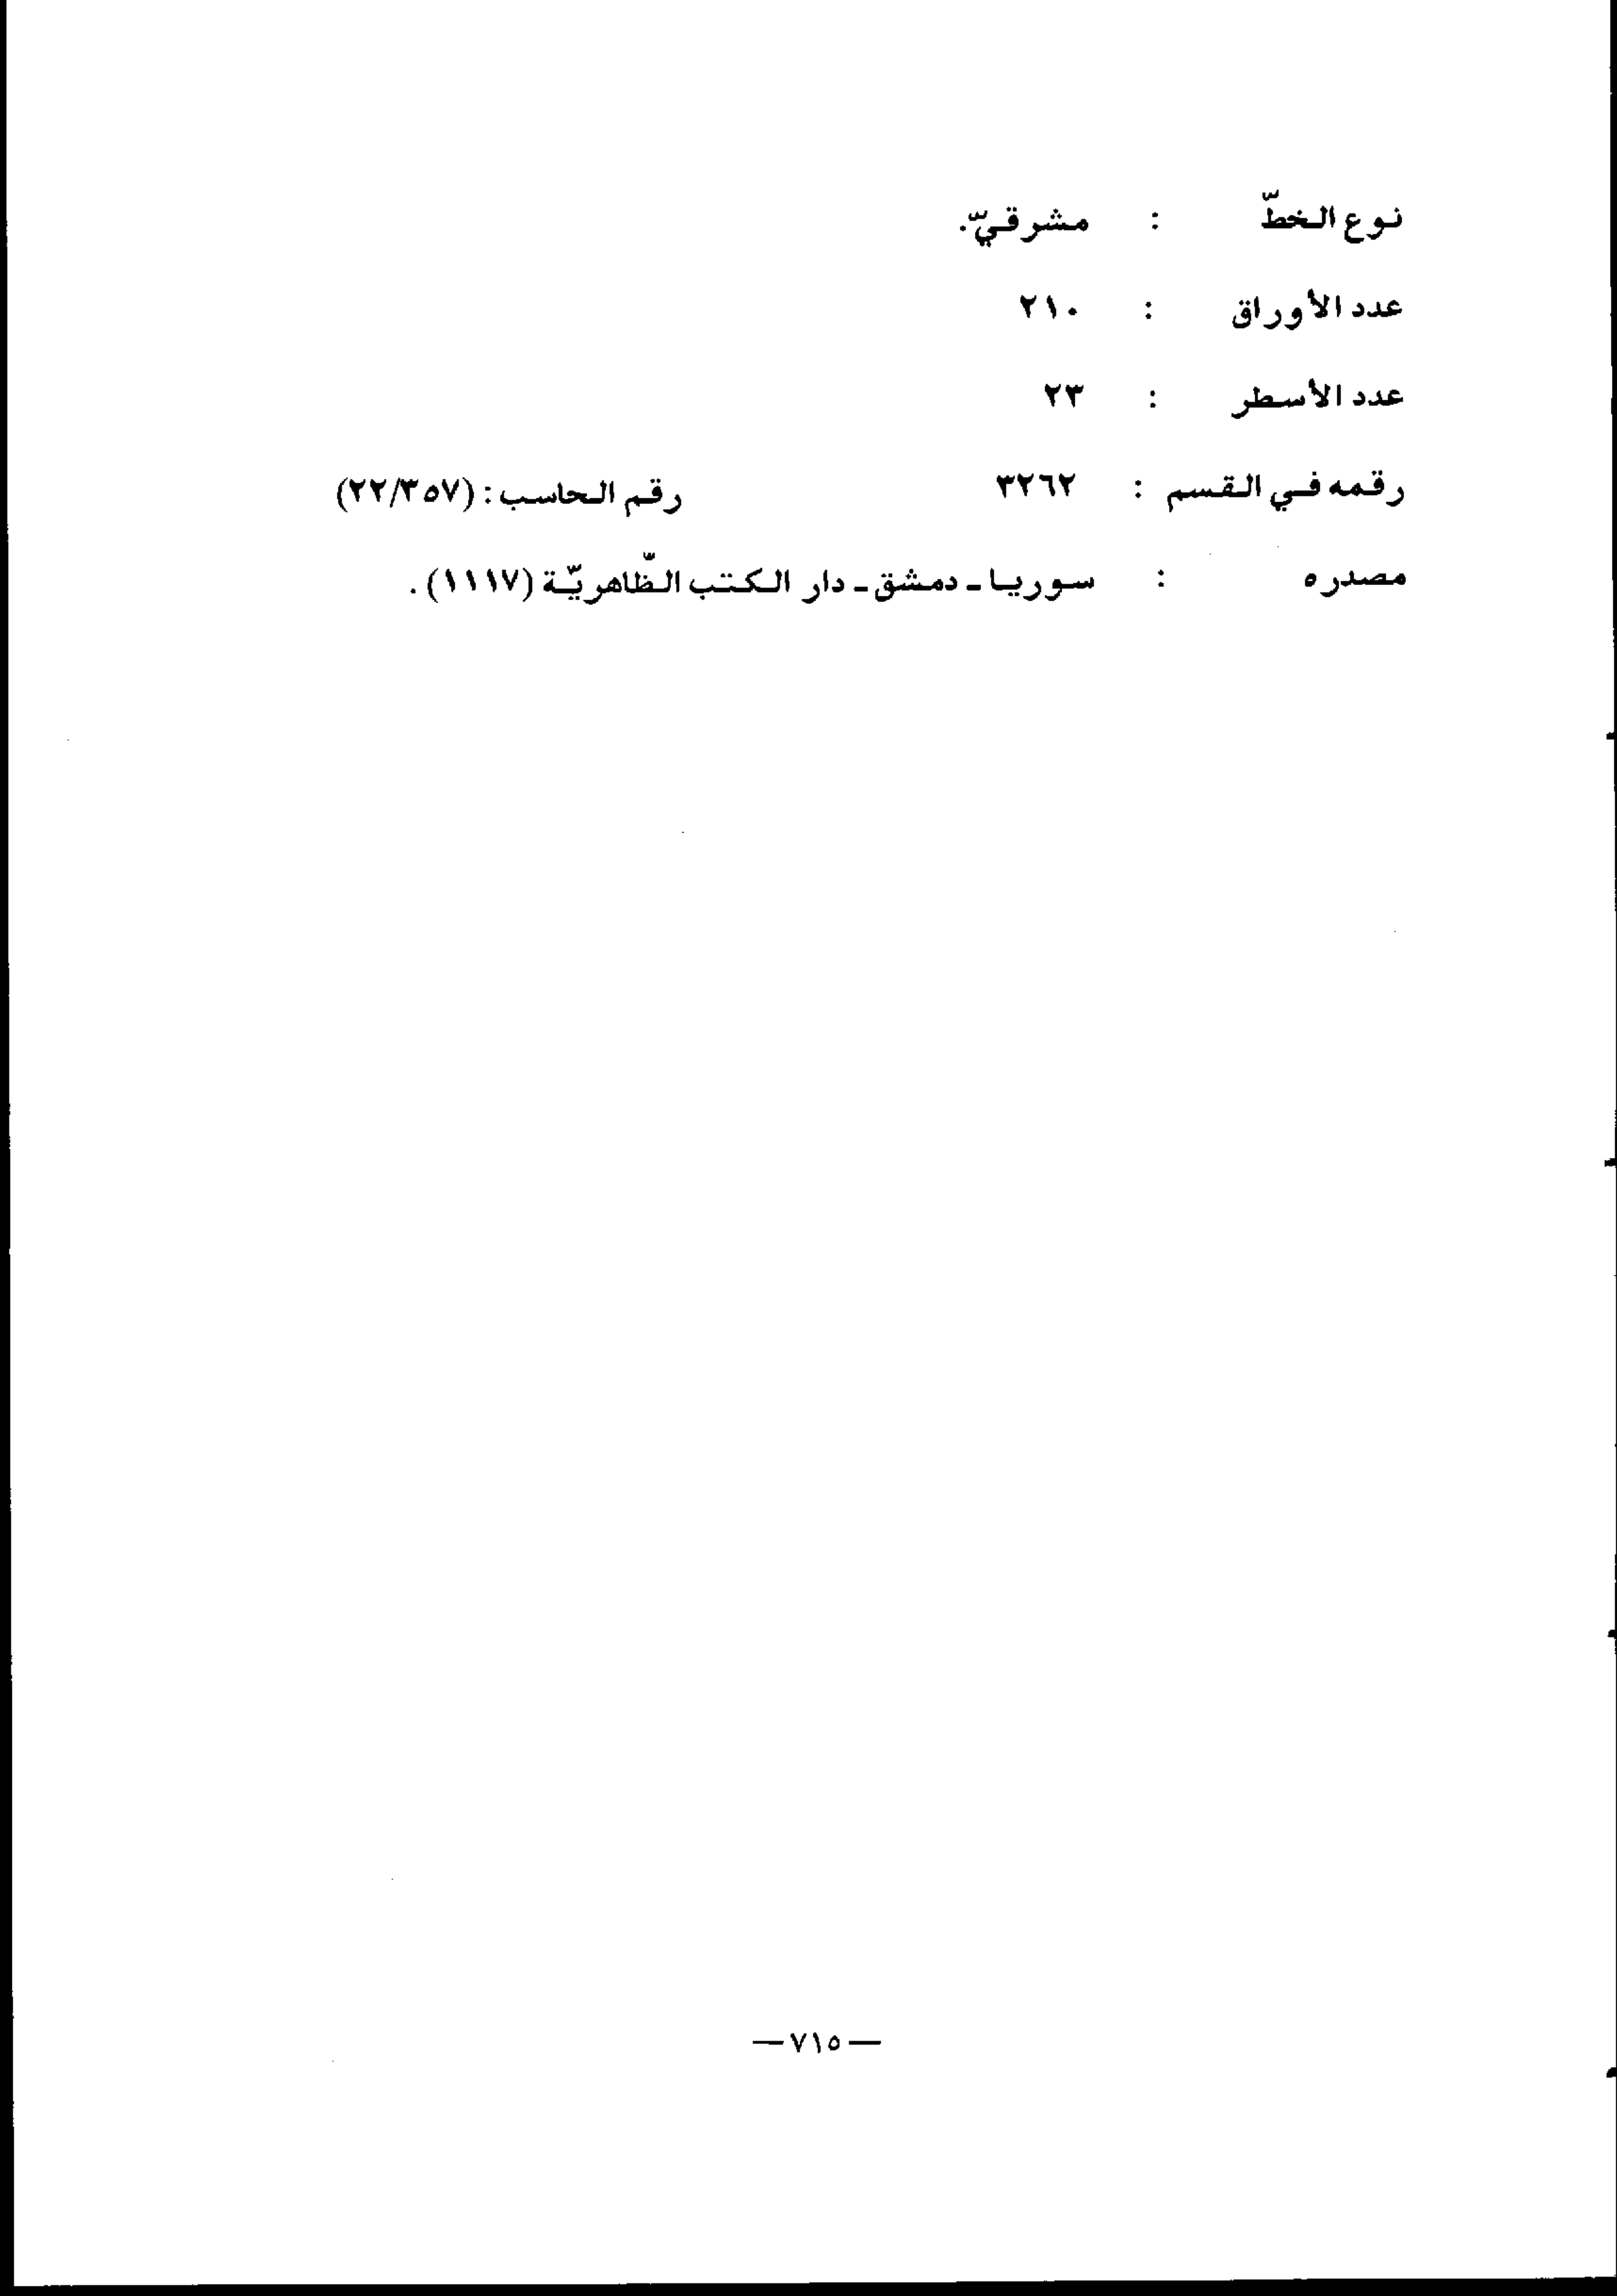 نوع الخطّ : مشرقيّ.
عدد الأوراق : ٢١٠
عدد الأسطر : ٢٣
رقمه في القسم : ٣٢٦٢ رقم الحاسب : (٢٢/٣٥٧)
مصدره : سوريا ـ دمشق ـ دار الكتب الظّاهريّة (١١١٧) .
— ٧١٥ —